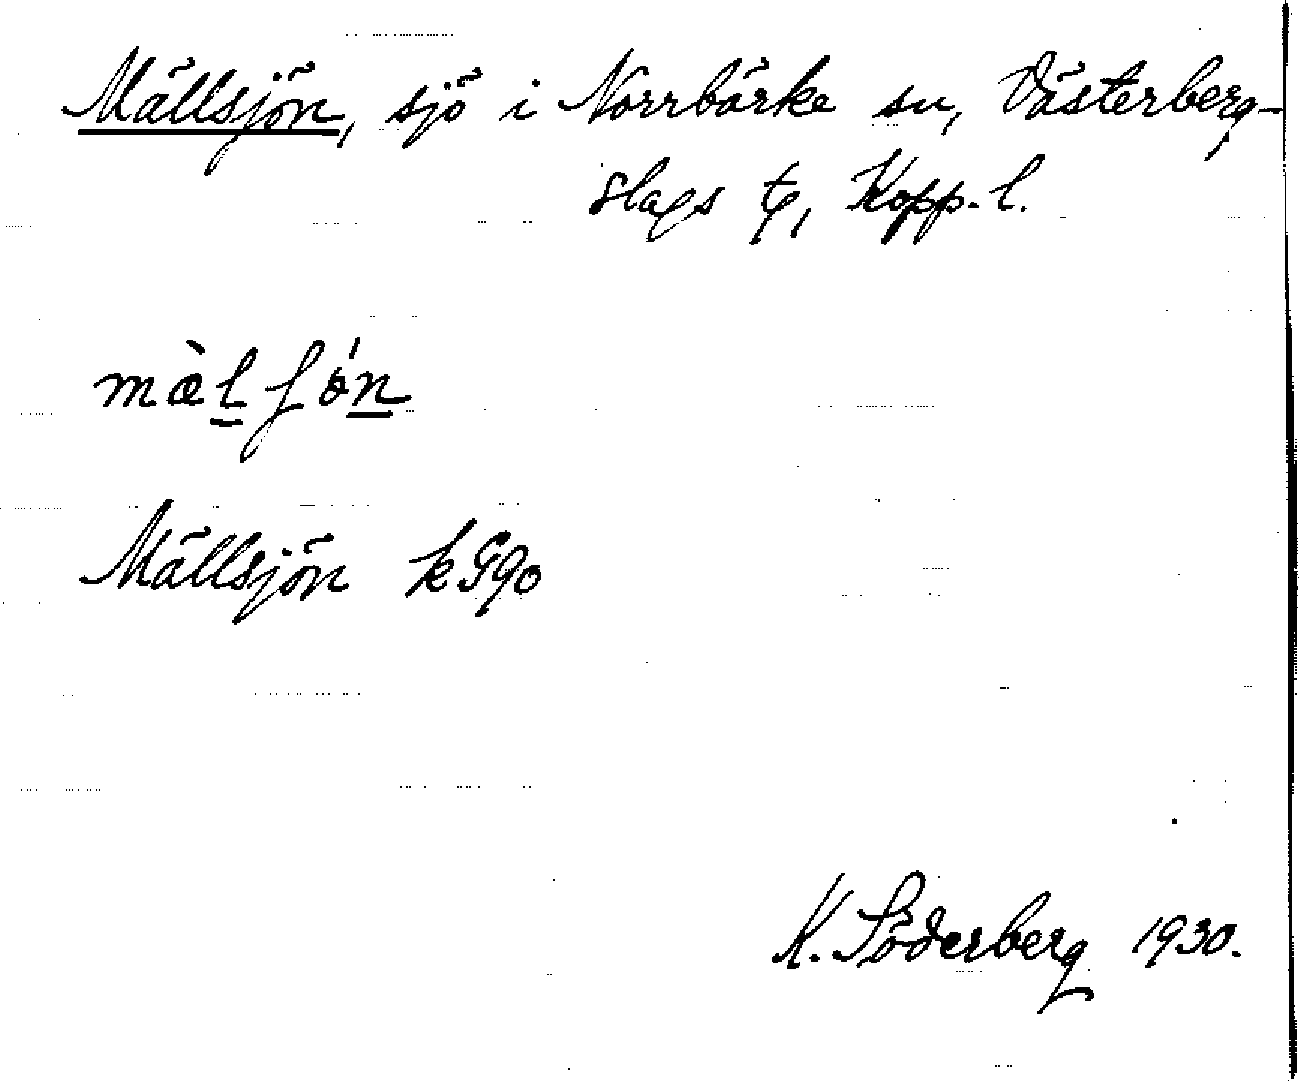 Mällsjön, sjö i Norrbärke sn, Västerberg-
slags tg, Kopp. l.
mæ̀lʃón
Mällsjön k G90
K. Söderberg 1930.